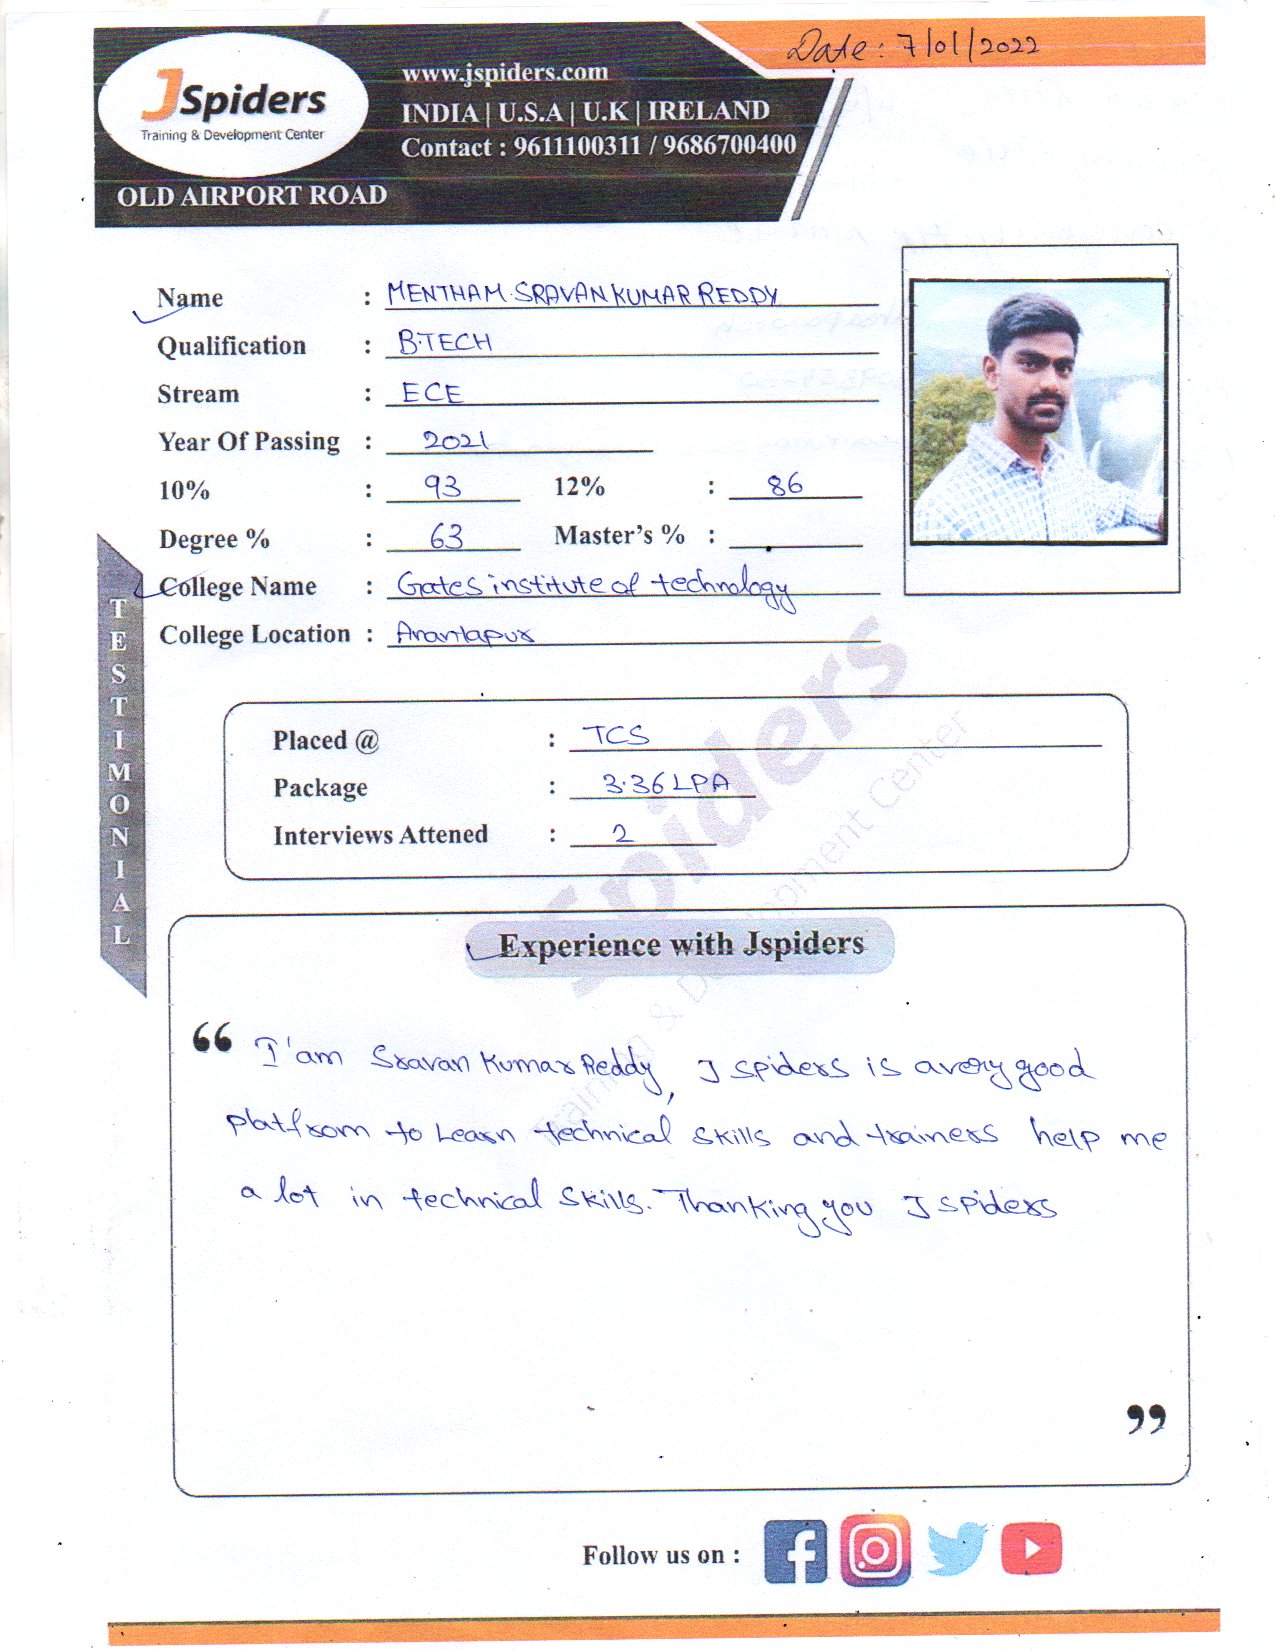 Date : 7/01/2022
JSpiders
Training & Development Center
OLD AIRPORT ROAD
www.jspiders.com
INDIA | U.S.A | U.K | IRELAND
Contact : 9611100311 / 9686700400
Name : MENTHAM.SRAVAN KUMAR REDDY
Qualification : B.TECH
Stream : ECE
Year Of Passing : 2021
10% : 93 12% : 86
Degree % : 63 Master's % :
College Name : Gates institute of technology
College Location : Anantapur
TESTIMONIAL
Placed @ : TCS
Package : 3.36 LPA
Interviews Attened : 2
Spiders
Training & Development Center
Experience with Jspiders
“ I'am Sravan Kumar Reddy, J spiders is a very good
platfrom to Learn technical skills and trainers help me
a lot in technical skills. Thanking you J spiders
”
Follow us on :